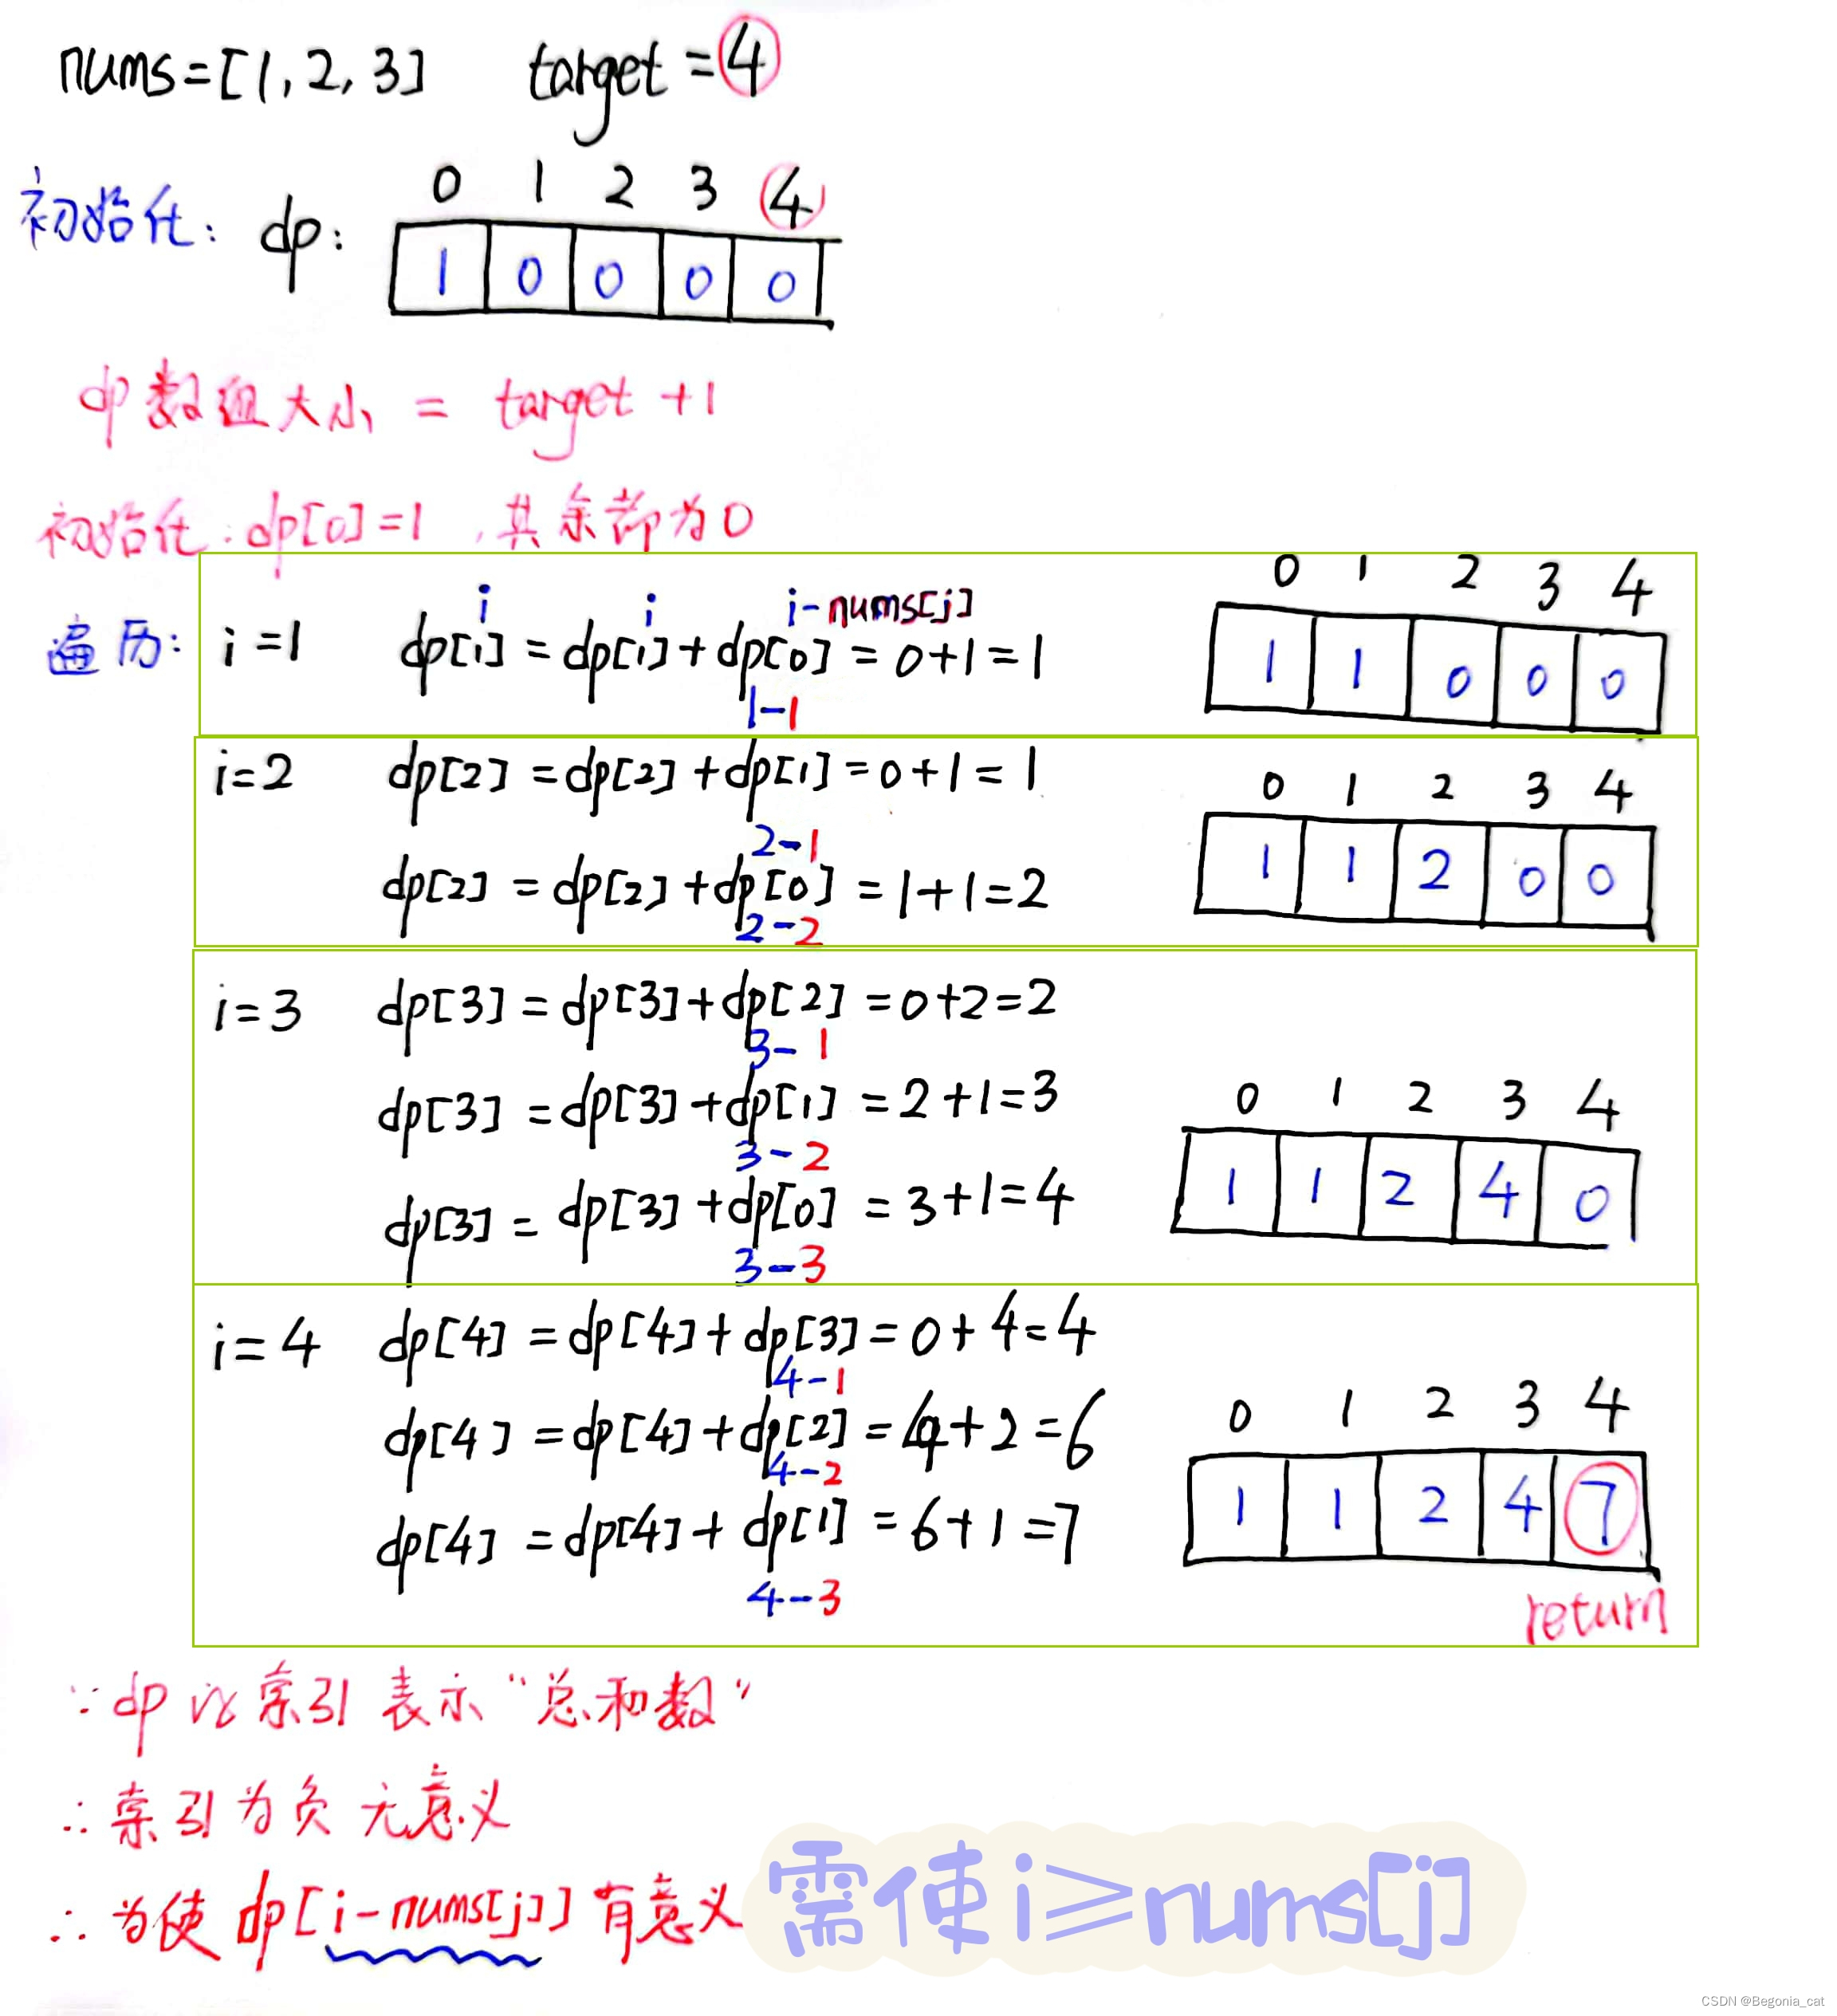 nums=[1,2,3] target=4
0 1 2 3 4
初始化: dp: 1 0 0 0 0
dp数组大小 = target +1
初始化:dp[0]=1 ,其余都为0
i i i-nums[j] 0 1 2 3 4
遍历: i=1 dp[1]=dp[1]+dp[0]=0+1=1 1 1 0 0 0
1-1
i=2 dp[2]=dp[2]+dp[1]=0+1=1 0 1 2 3 4
2-1
dp[2]=dp[2]+dp[0]=1+1=2 1 1 2 0 0
2-2
i=3 dp[3]=dp[3]+dp[2]=0+2=2
3-1
dp[3]=dp[3]+dp[1]=2+1=3 0 1 2 3 4
3-2
dp[3]=dp[3]+dp[0]=3+1=4 1 1 2 4 0
3-3
i=4 dp[4]=dp[4]+dp[3]=0+4=4
4-1
dp[4]=dp[4]+dp[2]=4+2=6 0 1 2 3 4
4-2
dp[4]=dp[4]+dp[1]=6+1=7 1 1 2 4 7
4-3 return
∵dp以索引表示“总和数”
∴索引为负无意义
∴为使dp[i-nums[j]]有意义 需使i≥nums[j]
CSDN @Begonia_cat